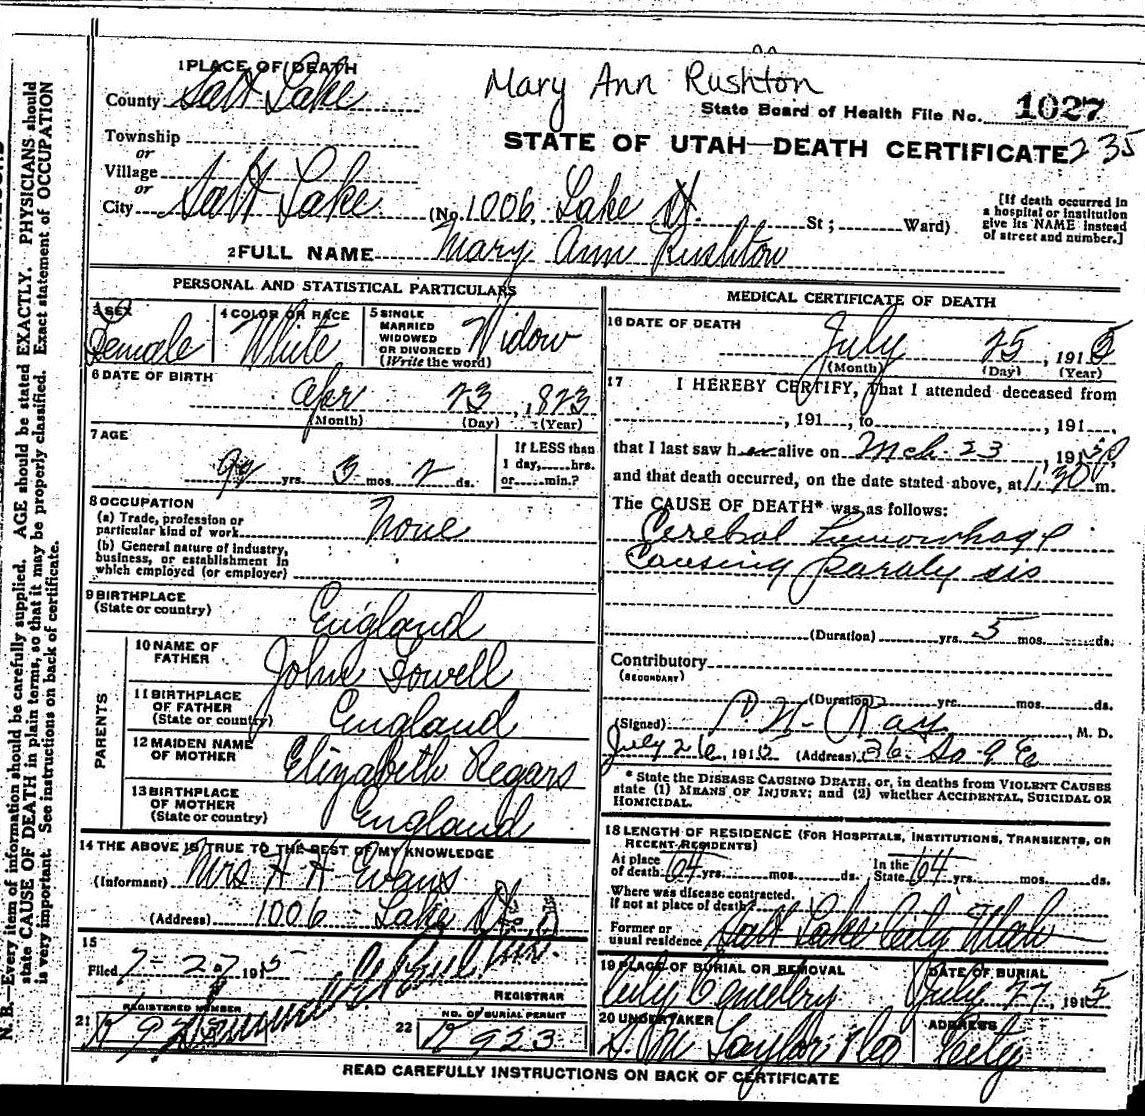 Mary Ann Rushton
1 PLACE OF DEATH
County Salt Lake
State Board of Health File No. 1027
Township
or
Village
or
City Salt Lake
STATE OF UTAH—DEATH CERTIFICATE 235
(No. 1006 Lake St. St; Ward)
[If death occurred in
a hospital or institution
give its NAME instead
of street and number.]
2 FULL NAME Mary Ann Rushton
PERSONAL AND STATISTICAL PARTICULARS
3 SEX
Female
4 COLOR OR RACE
White
5 SINGLE
MARRIED
WIDOWED
OR DIVORCED
(Write the word)
Widow
6 DATE OF BIRTH
Apr 23, 1823
(Month) (Day) (Year)
7 AGE
yrs. 3 mos. 2 ds.
If LESS than
1 day, hrs.
or min.?
8 OCCUPATION
(a) Trade, profession or
particular kind of work
None
(b) General nature of industry,
business, or establishment in
which employed (or employer)
9 BIRTHPLACE
(State or country)
England
PARENTS
10 NAME OF
FATHER
John Fowell
11 BIRTHPLACE
OF FATHER
(State or country)
England
12 MAIDEN NAME
OF MOTHER
Elizabeth
13 BIRTHPLACE
OF MOTHER
(State or country)
England
14 THE ABOVE IS TRUE TO THE BEST OF MY KNOWLEDGE
(Informant) Mrs H H Evans
(Address) 1006 Lake St
15
Filed 7-27 1915
REGISTRAR
REGISTERED NUMBER
21
22
NO. OF BURIAL PERMIT
K 923
MEDICAL CERTIFICATE OF DEATH
16 DATE OF DEATH
July 25, 1915
(Month) (Day) (Year)
17 I HEREBY CERTIFY, That I attended deceased from
, 191 , to , 191 ,
that I last saw her alive on Mch 23, 191
and that death occurred, on the date stated above, at 1:30 m.
The CAUSE OF DEATH* was as follows:
Cerebral hemorrhage
Causing paralysis
(Duration) yrs. 5 mos. ds.
Contributory
(SECONDARY)
(Duration) yrs. mos. ds.
(Signed) Ray, M. D.
July 26, 191 (Address) 36 So 9 E
* State the DISEASE CAUSING DEATH, or, in deaths from VIOLENT CAUSES
state (1) MEANS OF INJURY; and (2) whether ACCIDENTAL, SUICIDAL OR
HOMICIDAL.
18 LENGTH OF RESIDENCE (FOR HOSPITALS, INSTITUTIONS, TRANSIENTS, OR
RECENT RESIDENTS)
At place
of death 64 yrs. mos. ds.
In the
State 64 yrs. mos. ds.
Where was disease contracted,
if not at place of death?
Former or
usual residence Salt Lake City Utah
19 PLACE OF BURIAL OR REMOVAL
City Cemetery
DATE OF BURIAL
July 27, 1915
20 UNDERTAKER
S. M. Taylor & Co
ADDRESS
City
READ CAREFULLY INSTRUCTIONS ON BACK OF CERTIFICATE
N. B.—Every item of information should be carefully supplied. AGE should be stated EXACTLY. PHYSICIANS should
state CAUSE OF DEATH in plain terms, so that it may be properly classified. Exact statement of OCCUPATION
is very important. See instructions on back of certificate.